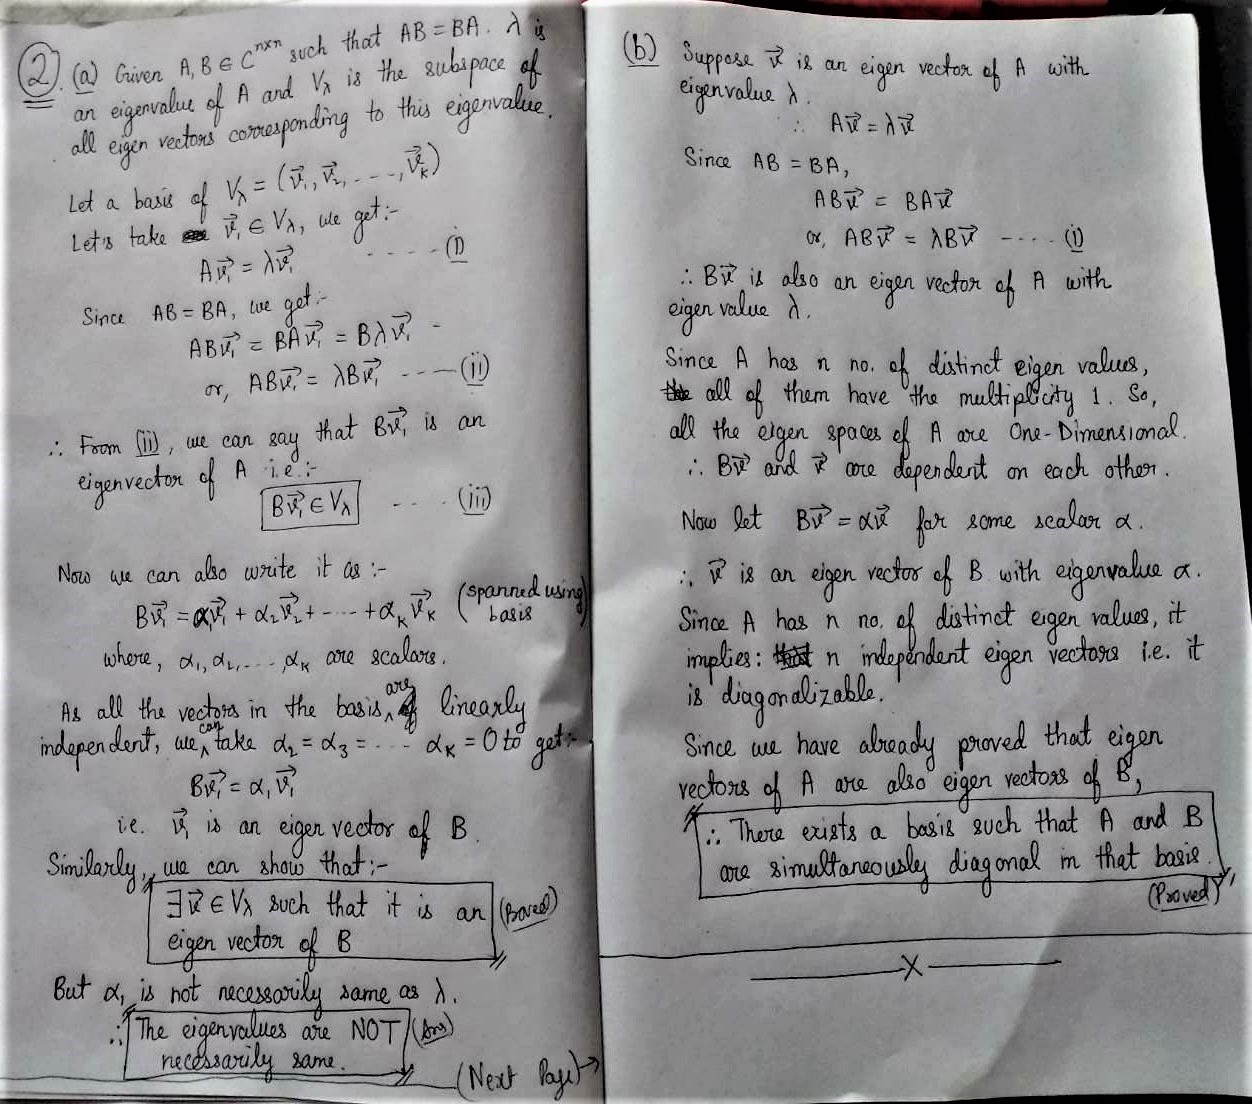 ② (a) Given A, B ∈ C^{n×n} such that AB = BA. λ is
an eigenvalue of A and V_λ is the subspace of
all eigen vectors corresponding to this eigenvalue.
Let a basis of V_λ = (v⃗₁, v⃗₂, ..., v⃗_k)
Let's take v⃗₁ ∈ V_λ, we get:-
Av⃗₁ = λv⃗₁ ----- (i)
Since AB = BA, we get:-
ABv⃗₁ = BAv⃗₁ = Bλv⃗₁
or, ABv⃗₁ = λBv⃗₁ ---- (ii)
∴ From (ii), we can say that Bv⃗₁ is an
eigenvector of A i.e:-
Bv⃗₁ ∈ V_λ ---- (iii)
Now we can also write it as :-
Bv⃗₁ = α₁v⃗₁ + α₂v⃗₂ + ---- + α_k v⃗_k (spanned using
basis
where, α₁, α₂, ..., α_k are scalars.
As all the vectors in the basis are linearly
independent, we can take α₂ = α₃ = .... α_k = 0 to get:-
Bv⃗₁ = α₁v⃗₁
i.e. v⃗₁ is an eigen vector of B.
Similarly, we can show that:-
∃ v⃗ ∈ V_λ such that it is an (Proved)
eigen vector of B
But α₁ is not necessarily same as λ.
∴ The eigenvalues are NOT (Ans)
necessarily same.
(Next Page)→
(b) Suppose v⃗ is an eigen vector of A with
eigenvalue λ.
∴ Av⃗ = λv⃗
Since AB = BA,
ABv⃗ = BAv⃗
or, ABv⃗ = λBv⃗ ---- (i)
∴ Bv⃗ is also an eigen vector of A with
eigen value λ.
Since A has n no. of distinct eigen values,
all of them have the multiplicity 1. So,
all the eigen spaces of A are One-Dimensional.
∴ Bv⃗ and v⃗ are dependent on each other.
Now let Bv⃗ = αv⃗ for some scalar α.
∴ v⃗ is an eigen vector of B with eigenvalue α.
Since A has n no. of distinct eigen values, it
implies: n independent eigen vectors i.e. it
is diagonalizable.
Since we have already proved that eigen
vectors of A are also eigen vectors of B,
∴ There exists a basis such that A and B
are simultaneously diagonal in that basis.
(Proved)
X